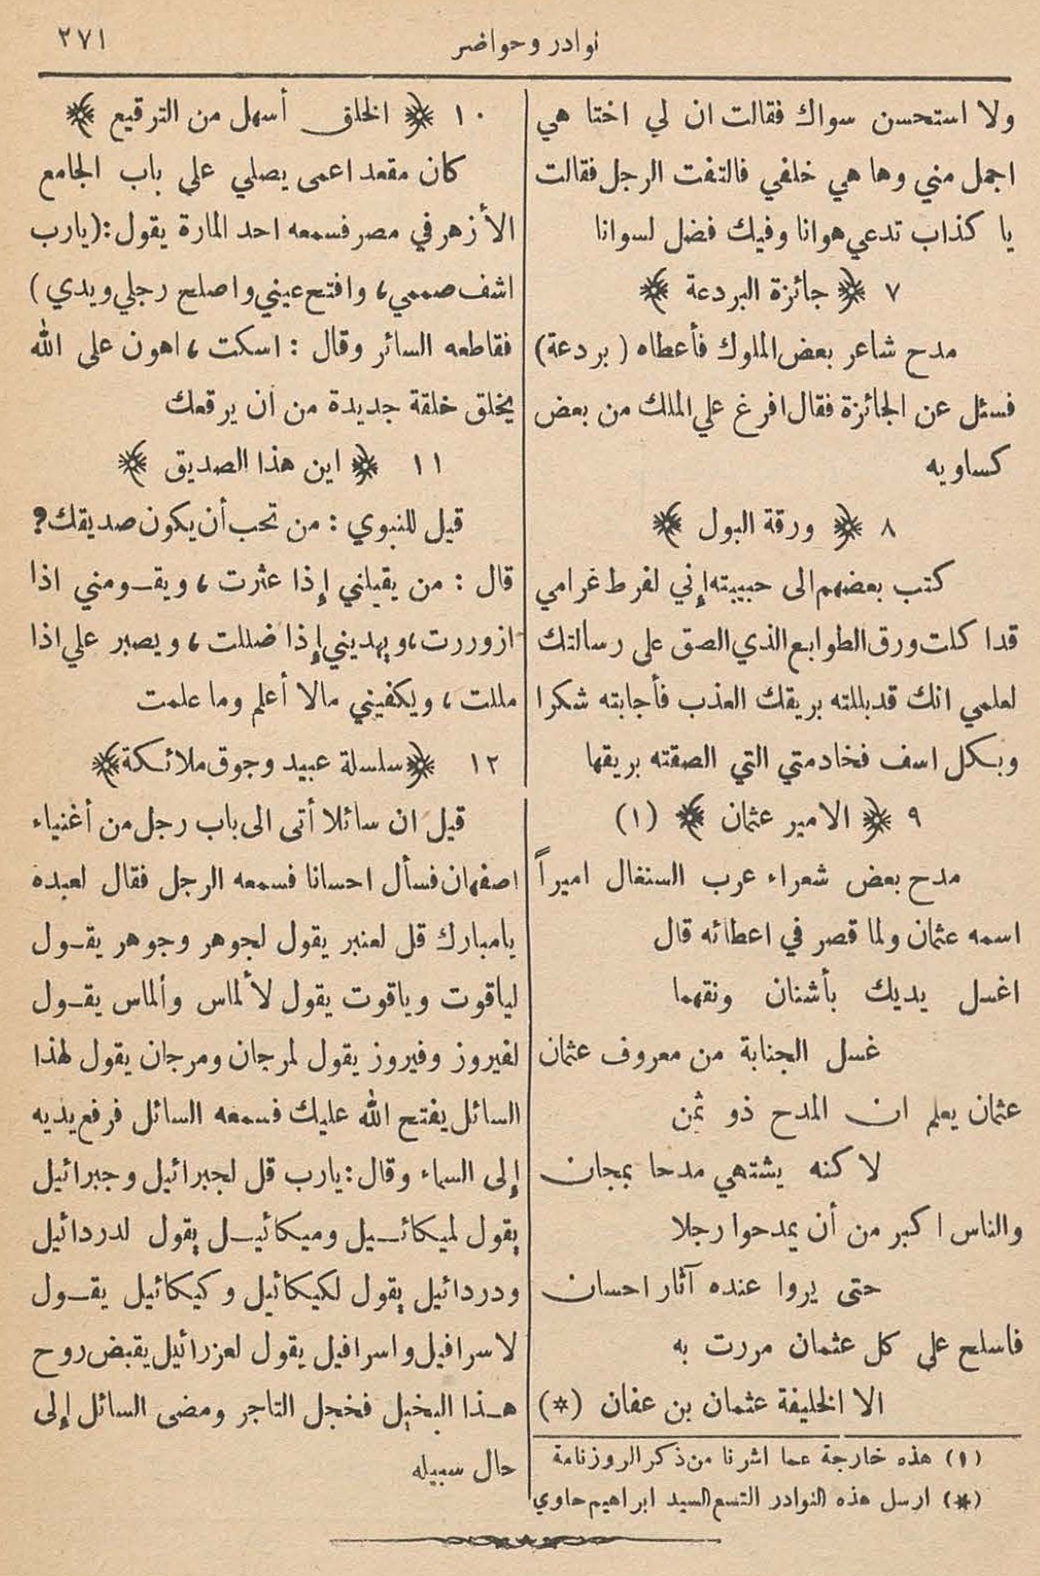 نوادر وحواضر
٢٧١
ولا استحسن سواك فقالت ان لي اختا هي
اجمل مني وها هي خلفي فالتفت الرجل فقالت
يا كذاب تدعي هوانا وفيك فضل لسوانا
٧ ﴿ جائزة البردعة ﴾
مدح شاعر بعض الملوك فأعطاه ( بردعة)
فسئل عن الجائزة فقال افرغ علي الملك من بعض
كساويه
٨ ﴿ ورقة البول ﴾
كتب بعضهم الى حبيبته إني لفرط غرامي
قد اكلت ورق الطوابع الذي الصق على رسالتك
لعلمي انك قد بللته بريقك العذب فأجابته شكرا
وبكل اسف فخادمتي التي الصقته بريقها
٩ ﴿ الامير عثمان ﴾ (١)
مدح بعض شعراء عرب السنغال اميراً
اسمه عثمان ولما قصر في اعطائه قال
اغسل يديك بأشنان ونقهما
غسل الجنابة من معروف عثمان
عثمان يعلم ان المدح ذو ثمن
لاكنه يشتهي مدحا بمجان
والناس اكبر من أن يمدحوا رجلا
حتى يروا عنده آثار احسان
فاسلح على كل عثمان مررت به
الا الخليفة عثمان بن عفان (*)
(١) هذه خارجة عما اشرنا من ذكر الروزنامة
(*) ارسل هذه النوادر التسع السيد ابراهيم حاوي
١٠ ﴿ الخلق أسهل من الترقيع ﴾
كان مقعد اعمى يصلي علي باب الجامع
الأزهر في مصر فسمعه احد المارة يقول:(يارب
اشف صممي، وافتح عيني واصلح رجلي ويدي)
فقاطعه السائر وقال : اسكت ، اهون على الله
يخلق خلقة جديدة من ان يرقعك
١١ ﴿ اين هذا الصديق ﴾
قيل للنبوي : من تحب أن يكون صديقك؟
قال : من يقيلني إذا عثرت ، ويقـومني اذا
ازوررت،ويهديني إذا ضللت ، ويصبر علي اذا
مللت ، ويكفيني مالا أعلم وما علمت
١٢ ﴿سلسلة عبيد وجوق ملائكة﴾
قيل ان سائلا أتى الى باب رجل من أغنياء
اصفهان فسأل احسانا فسمعه الرجل فقال لعبده
يامبارك قل لعنبر يقول لجوهر وجوهر يقـول
لياقوت وياقوت يقول لألماس وألماس يقـول
لفيروز وفيروز يقول لمرجان ومرجان يقول لهذا
السائل يفتح الله عليك فسمعه السائل فرفع يديه
إلى السماء وقال:يارب قل لجبرائيل وجبرائيل
يقول لميكائـيل وميكائيـل يقول لدردائيل
ودردائيل يقول لكيكائيل وكيكائيل يقـول
لاسرافيل واسرافيل يقول لعزرائيل يقبض روح
هـذا البخيل فخجل التاجر ومضى السائل إلى
حال سبيله